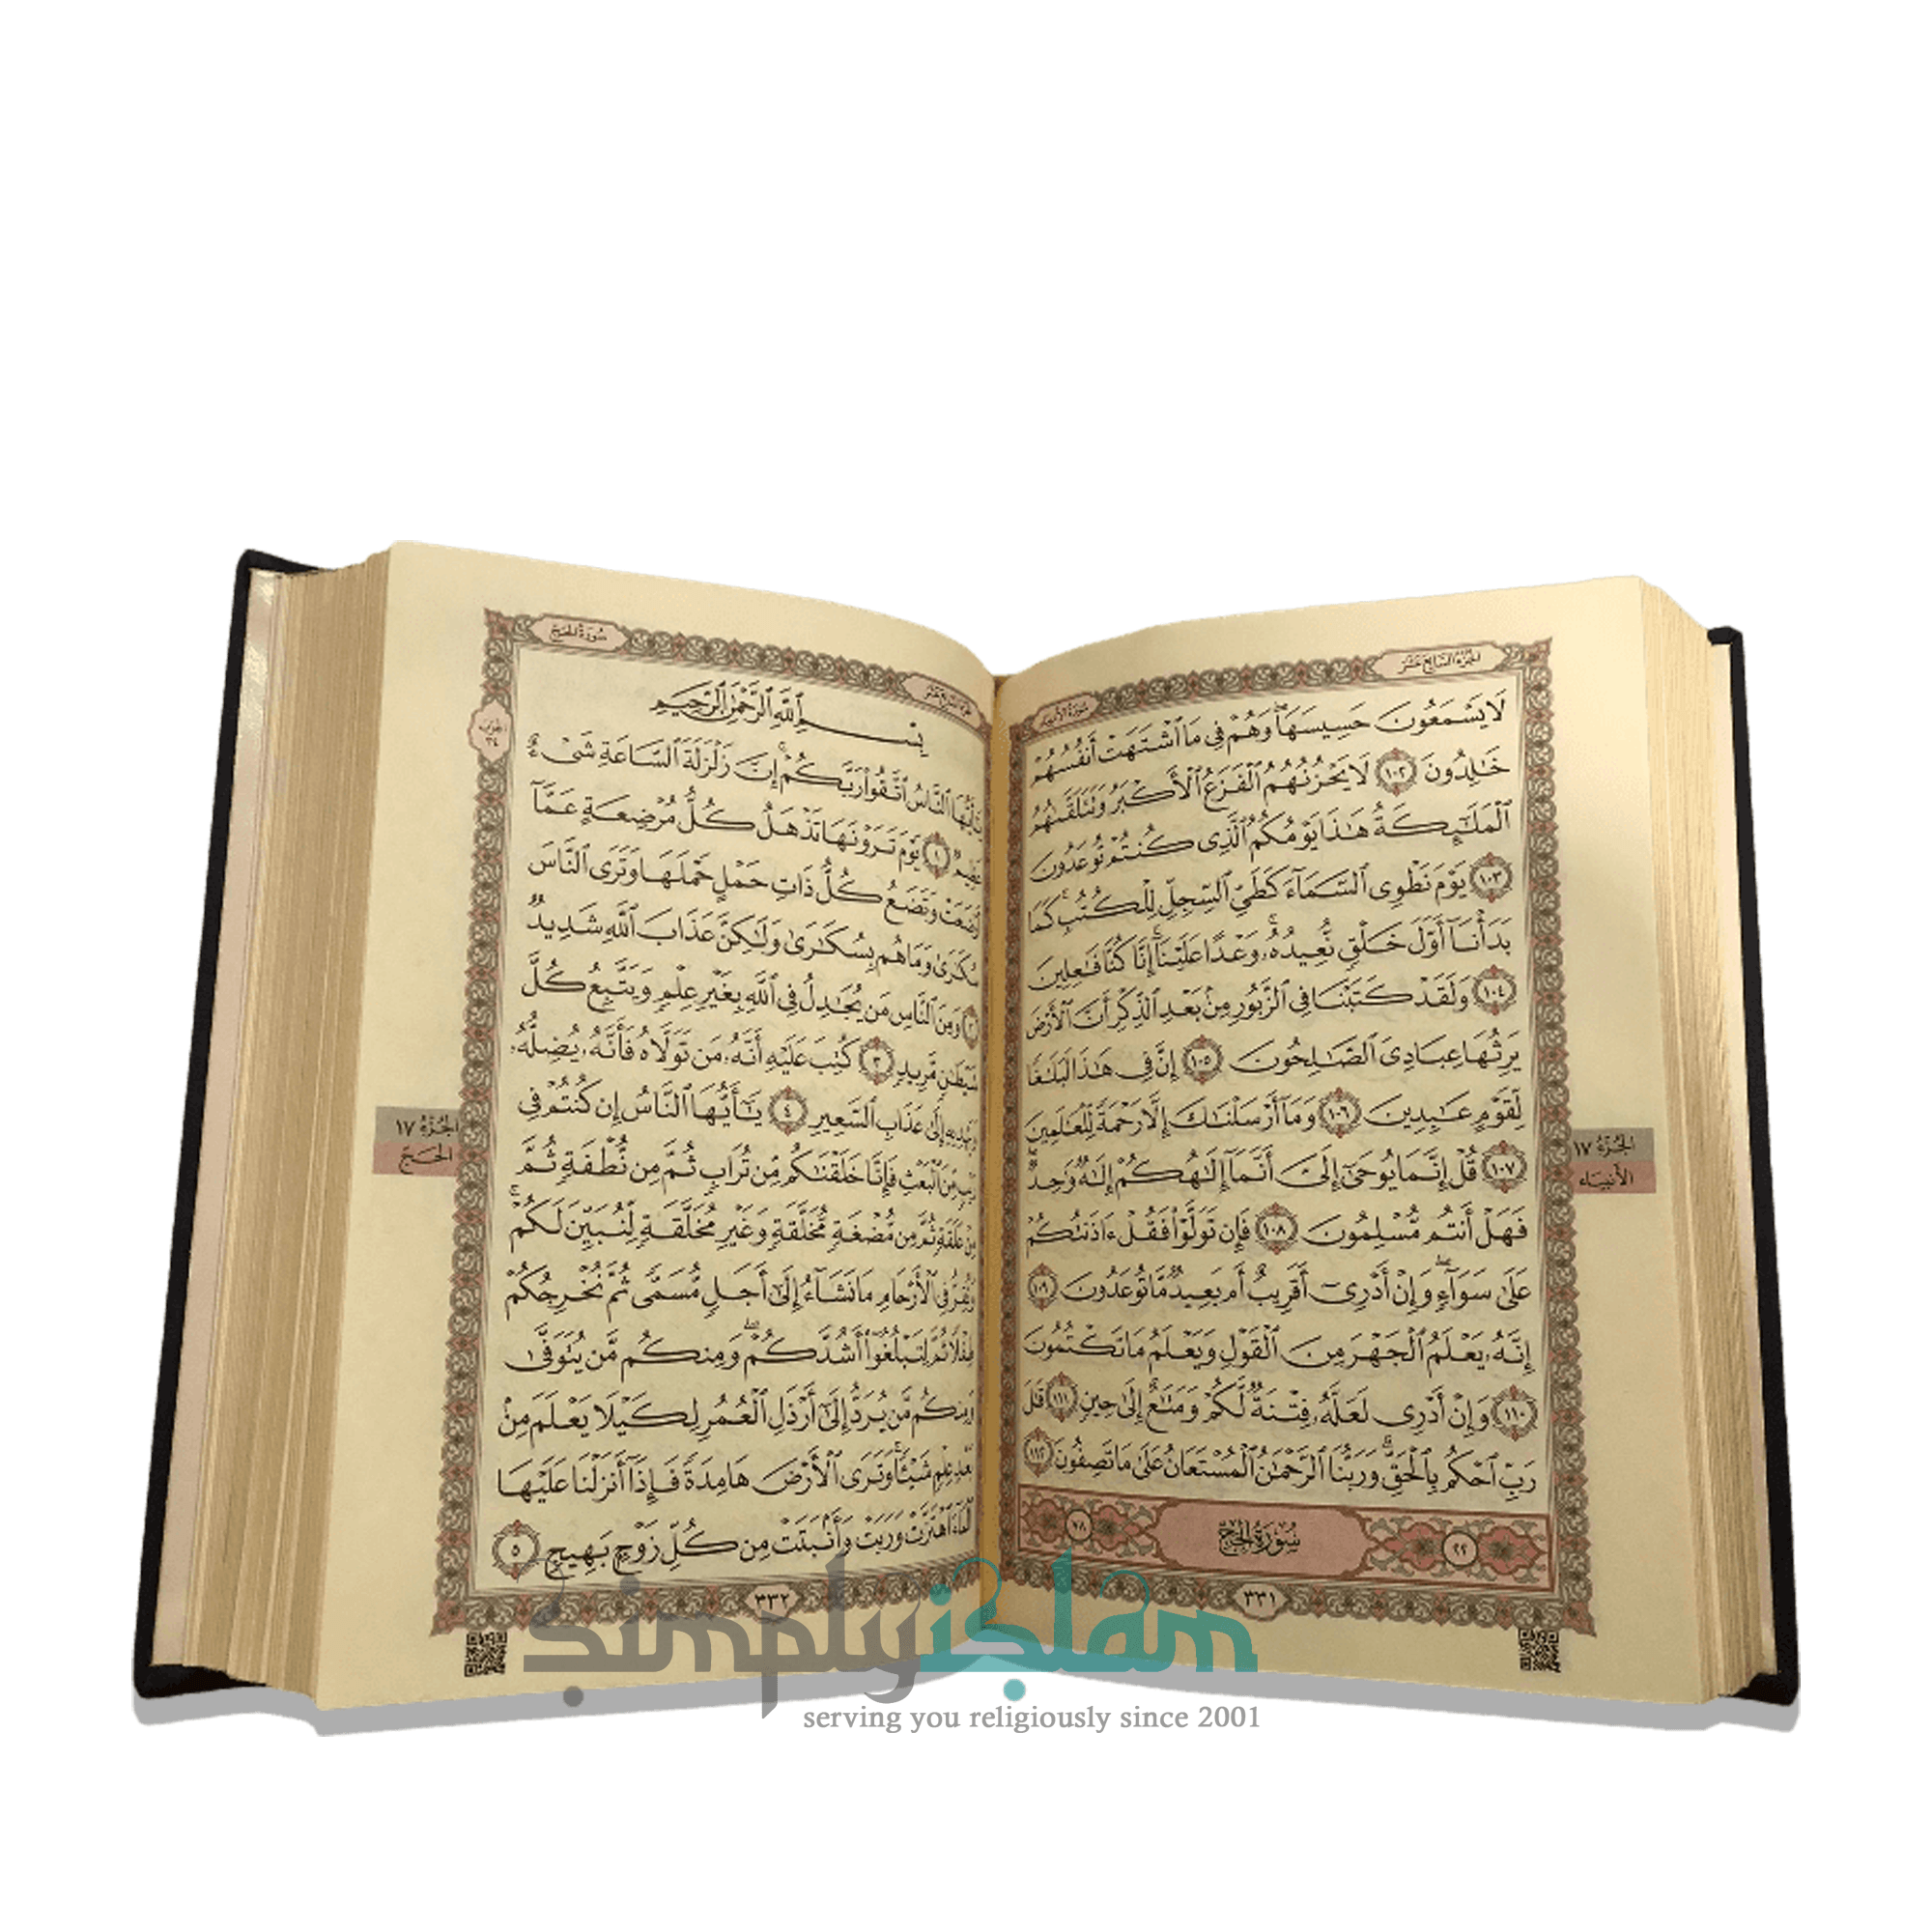 الجزء السابع عشر
سورة الأنبياء
لَا يَسْمَعُونَ حَسِيسَهَا ۖ وَهُمْ فِى مَا ٱشْتَهَتْ أَنفُسُهُمْ
خَـٰلِدُونَ ١٠٢ لَا يَحْزُنُهُمُ ٱلْفَزَعُ ٱلْأَكْبَرُ وَتَتَلَقَّىٰهُمُ
ٱلْمَلَـٰٓئِكَةُ هَـٰذَا يَوْمُكُمُ ٱلَّذِى كُنتُمْ تُوعَدُونَ
١٠٣ يَوْمَ نَطْوِى ٱلسَّمَآءَ كَطَىِّ ٱلسِّجِلِّ لِلْكُتُبِ ۚ كَمَا
بَدَأْنَآ أَوَّلَ خَلْقٍ نُّعِيدُهُۥ ۚ وَعْدًا عَلَيْنَآ ۚ إِنَّا كُنَّا فَـٰعِلِينَ
١٠٤ وَلَقَدْ كَتَبْنَا فِى ٱلزَّبُورِ مِنۢ بَعْدِ ٱلذِّكْرِ أَنَّ ٱلْأَرْضَ
يَرِثُهَا عِبَادِىَ ٱلصَّـٰلِحُونَ ١٠٥ إِنَّ فِى هَـٰذَا لَبَلَـٰغًا
لِّقَوْمٍ عَـٰبِدِينَ ١٠٦ وَمَآ أَرْسَلْنَـٰكَ إِلَّا رَحْمَةً لِّلْعَـٰلَمِينَ
١٠٧ قُلْ إِنَّمَا يُوحَىٰٓ إِلَىَّ أَنَّمَآ إِلَـٰهُكُمْ إِلَـٰهٌ وَٰحِدٌ ۖ
فَهَلْ أَنتُم مُّسْلِمُونَ ١٠٨ فَإِن تَوَلَّوْا۟ فَقُلْ ءَاذَنتُكُمْ
عَلَىٰ سَوَآءٍ ۖ وَإِنْ أَدْرِىٓ أَقَرِيبٌ أَم بَعِيدٌ مَّا تُوعَدُونَ ١٠٩
إِنَّهُۥ يَعْلَمُ ٱلْجَهْرَ مِنَ ٱلْقَوْلِ وَيَعْلَمُ مَا تَكْتُمُونَ
١١٠ وَإِنْ أَدْرِى لَعَلَّهُۥ فِتْنَةٌ لَّكُمْ وَمَتَـٰعٌ إِلَىٰ حِينٍ ١١١ قَـٰلَ
رَبِّ ٱحْكُم بِٱلْحَقِّ ۗ وَرَبُّنَا ٱلرَّحْمَـٰنُ ٱلْمُسْتَعَانُ عَلَىٰ مَا تَصِفُونَ ١١٢
٢٢ سُورَةُ الحَجِّ ٧٨
٣٣١
الجُزْءُ ١٧
الأنبيَاء
سورة الحج
بِسْمِ ٱللَّهِ ٱلرَّحْمَـٰنِ ٱلرَّحِيمِ
يَـٰٓأَيُّهَا ٱلنَّاسُ ٱتَّقُوا۟ رَبَّكُمْ ۚ إِنَّ زَلْزَلَةَ ٱلسَّاعَةِ شَىْءٌ
عَظِيمٌ ١ يَوْمَ تَرَوْنَهَا تَذْهَلُ كُلُّ مُرْضِعَةٍ عَمَّآ
أَرْضَعَتْ وَتَضَعُ كُلُّ ذَاتِ حَمْلٍ حَمْلَهَا وَتَرَى ٱلنَّاسَ
سُكَـٰرَىٰ وَمَا هُم بِسُكَـٰرَىٰ وَلَـٰكِنَّ عَذَابَ ٱللَّهِ شَدِيدٌ
٢ وَمِنَ ٱلنَّاسِ مَن يُجَـٰدِلُ فِى ٱللَّهِ بِغَيْرِ عِلْمٍ وَيَتَّبِعُ كُلَّ
شَيْطَـٰنٍ مَّرِيدٍ ٣ كُتِبَ عَلَيْهِ أَنَّهُۥ مَن تَوَلَّاهُ فَأَنَّهُۥ يُضِلُّهُۥ
وَيَهْدِيهِ إِلَىٰ عَذَابِ ٱلسَّعِيرِ ٤ يَـٰٓأَيُّهَا ٱلنَّاسُ إِن كُنتُمْ فِى
رَيْبٍ مِّنَ ٱلْبَعْثِ فَإِنَّا خَلَقْنَـٰكُم مِّن تُرَابٍ ثُمَّ مِن نُّطْفَةٍ ثُمَّ
مِنْ عَلَقَةٍ ثُمَّ مِن مُّضْغَةٍ مُّخَلَّقَةٍ وَغَيْرِ مُخَلَّقَةٍ لِّنُبَيِّنَ لَكُمْ ۚ
وَنُقِرُّ فِى ٱلْأَرْحَامِ مَا نَشَآءُ إِلَىٰٓ أَجَلٍ مُّسَمًّى ثُمَّ نُخْرِجُكُمْ
طِفْلًا ثُمَّ لِتَبْلُغُوٓا۟ أَشُدَّكُمْ ۖ وَمِنكُم مَّن يُتَوَفَّىٰ
وَمِنكُم مَّن يُرَدُّ إِلَىٰٓ أَرْذَلِ ٱلْعُمُرِ لِكَيْلَا يَعْلَمَ مِنۢ
بَعْدِ عِلْمٍ شَيْـًٔا ۚ وَتَرَى ٱلْأَرْضَ هَامِدَةً فَإِذَآ أَنزَلْنَا عَلَيْهَا
ٱلْمَآءَ ٱهْتَزَّتْ وَرَبَتْ وَأَنۢبَتَتْ مِن كُلِّ زَوْجٍۭ بَهِيجٍ ٥
٣٣٢
الحزب
٣٤
الجُزْءُ ١٧
الحَجّ
simplyislam
serving you religiously since 2001